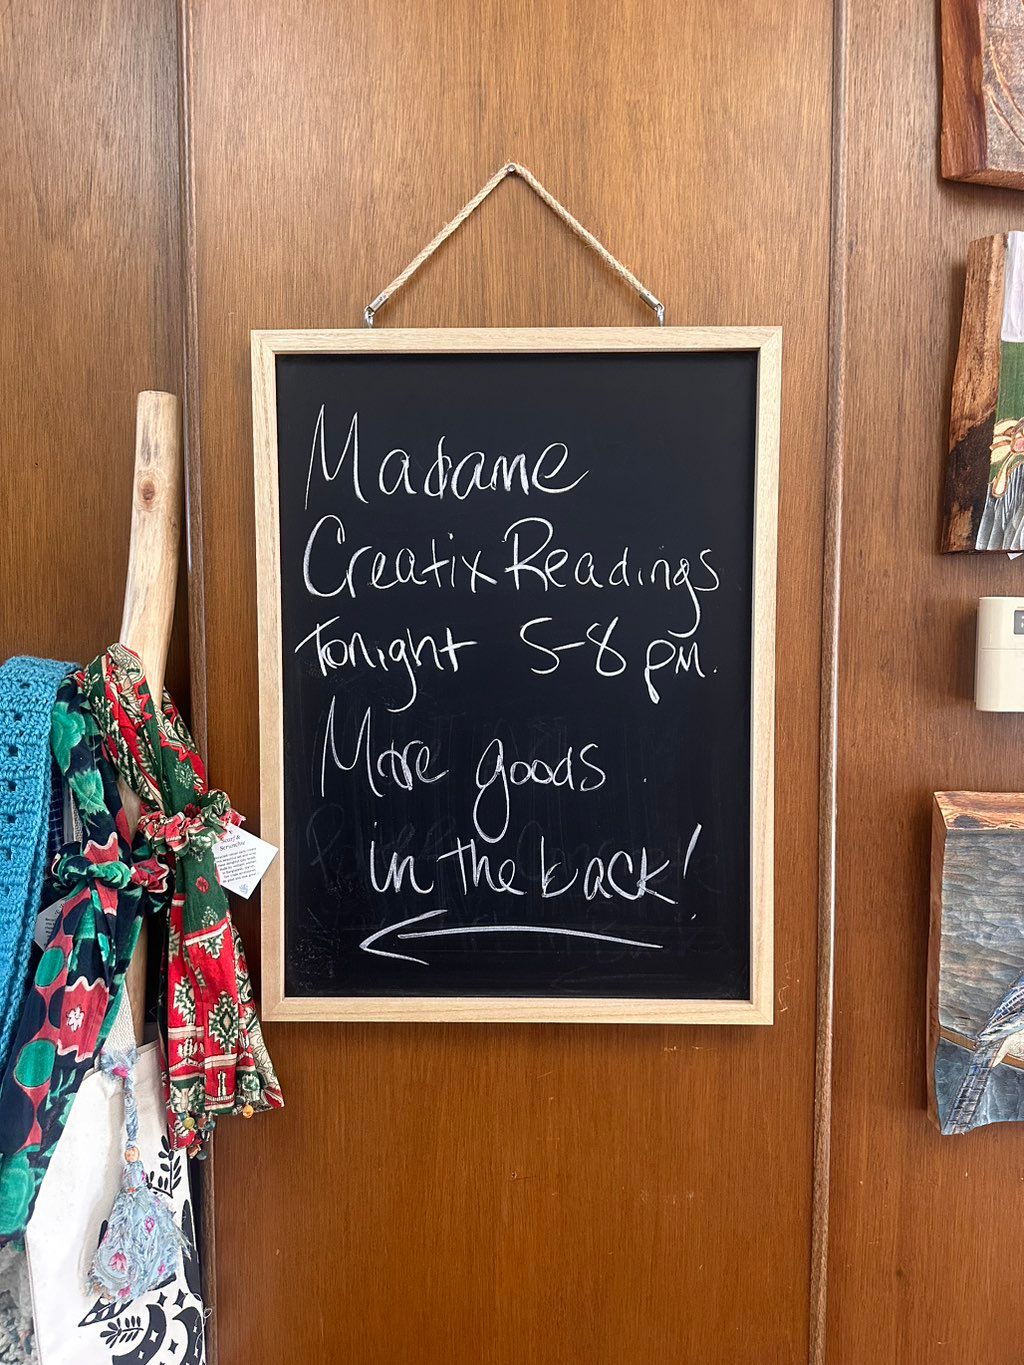 Madame
Creatix Readings
Tonight 5-8 pm.
More goods
in the back!
Scarf &
Scrunchie